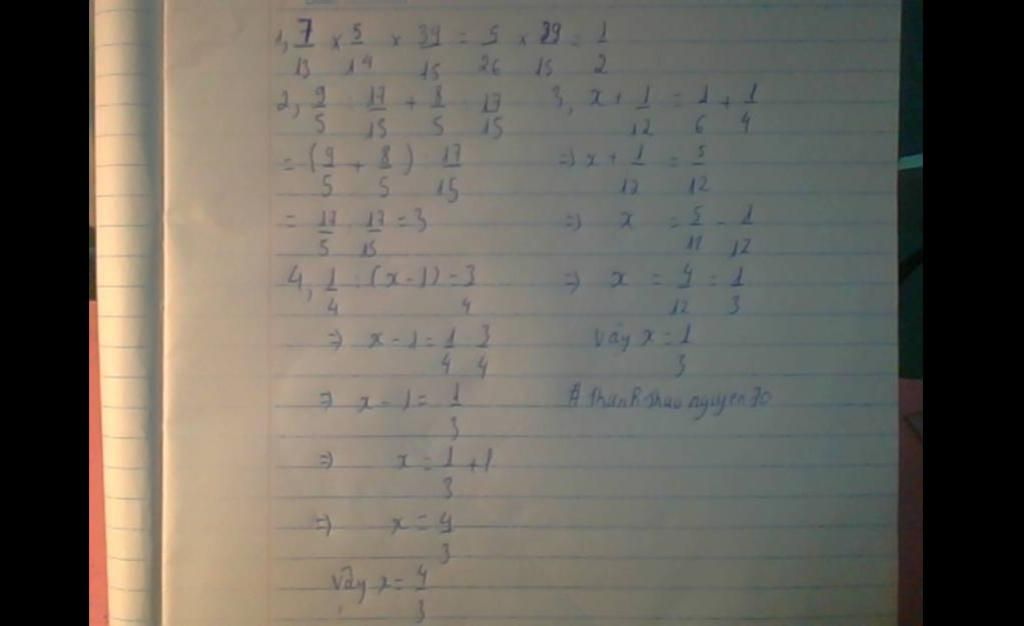 1, 7/13 x 5/14 x 39/15 = 5/26 x 39/15 = 1/2
2, 9/5 : 17/15 + 8/5 : 17/15
= (9/5 + 8/5) : 17/15
= 17/5 : 17/15 = 3
3, x + 1/12 = 1/6 + 1/4
=> x + 1/12 = 5/12
=> x = 5/12 - 1/12
=> x = 4/12 = 1/3
Vậy x = 1/3
4, 1/4 : (x - 1) = 3/4
=> x - 1 = 1/4 : 3/4
=> x - 1 = 1/3
=> x = 1/3 + 1
=> x = 4/3
Vậy x = 4/3